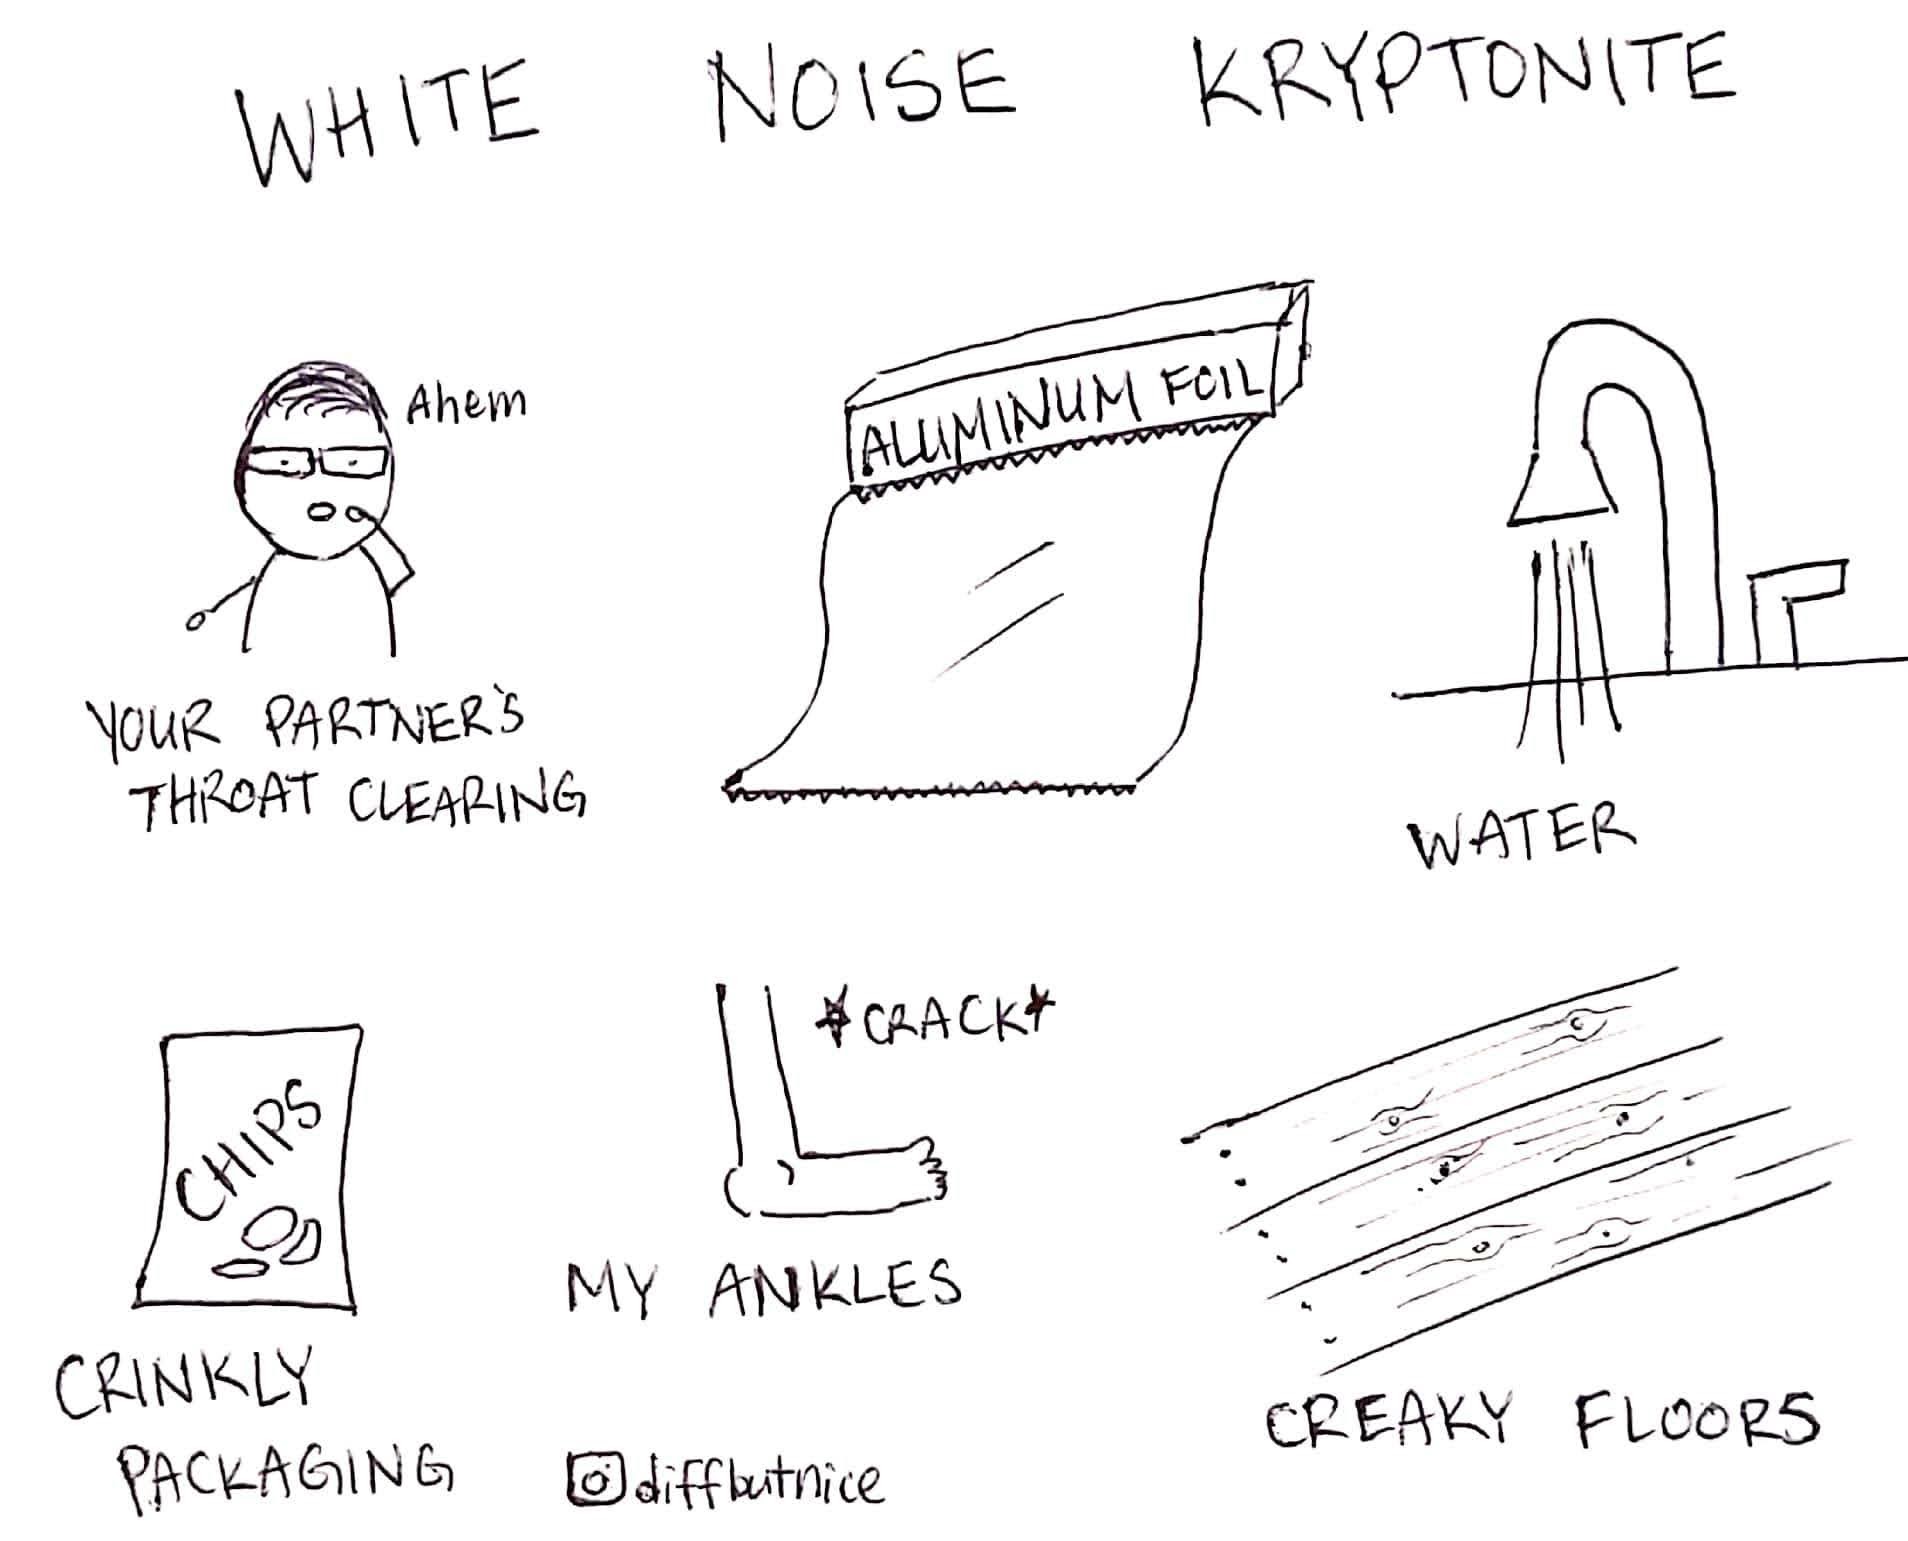 WHITE NOISE KRYPTONITE
Ahem
YOUR PARTNER'S
THROAT CLEARING
ALUMINUM FOIL
WATER
CHIPS
CRINKLY
PACKAGING
*CRACK*
MY ANKLES
CREAKY FLOORS
diffbutnice